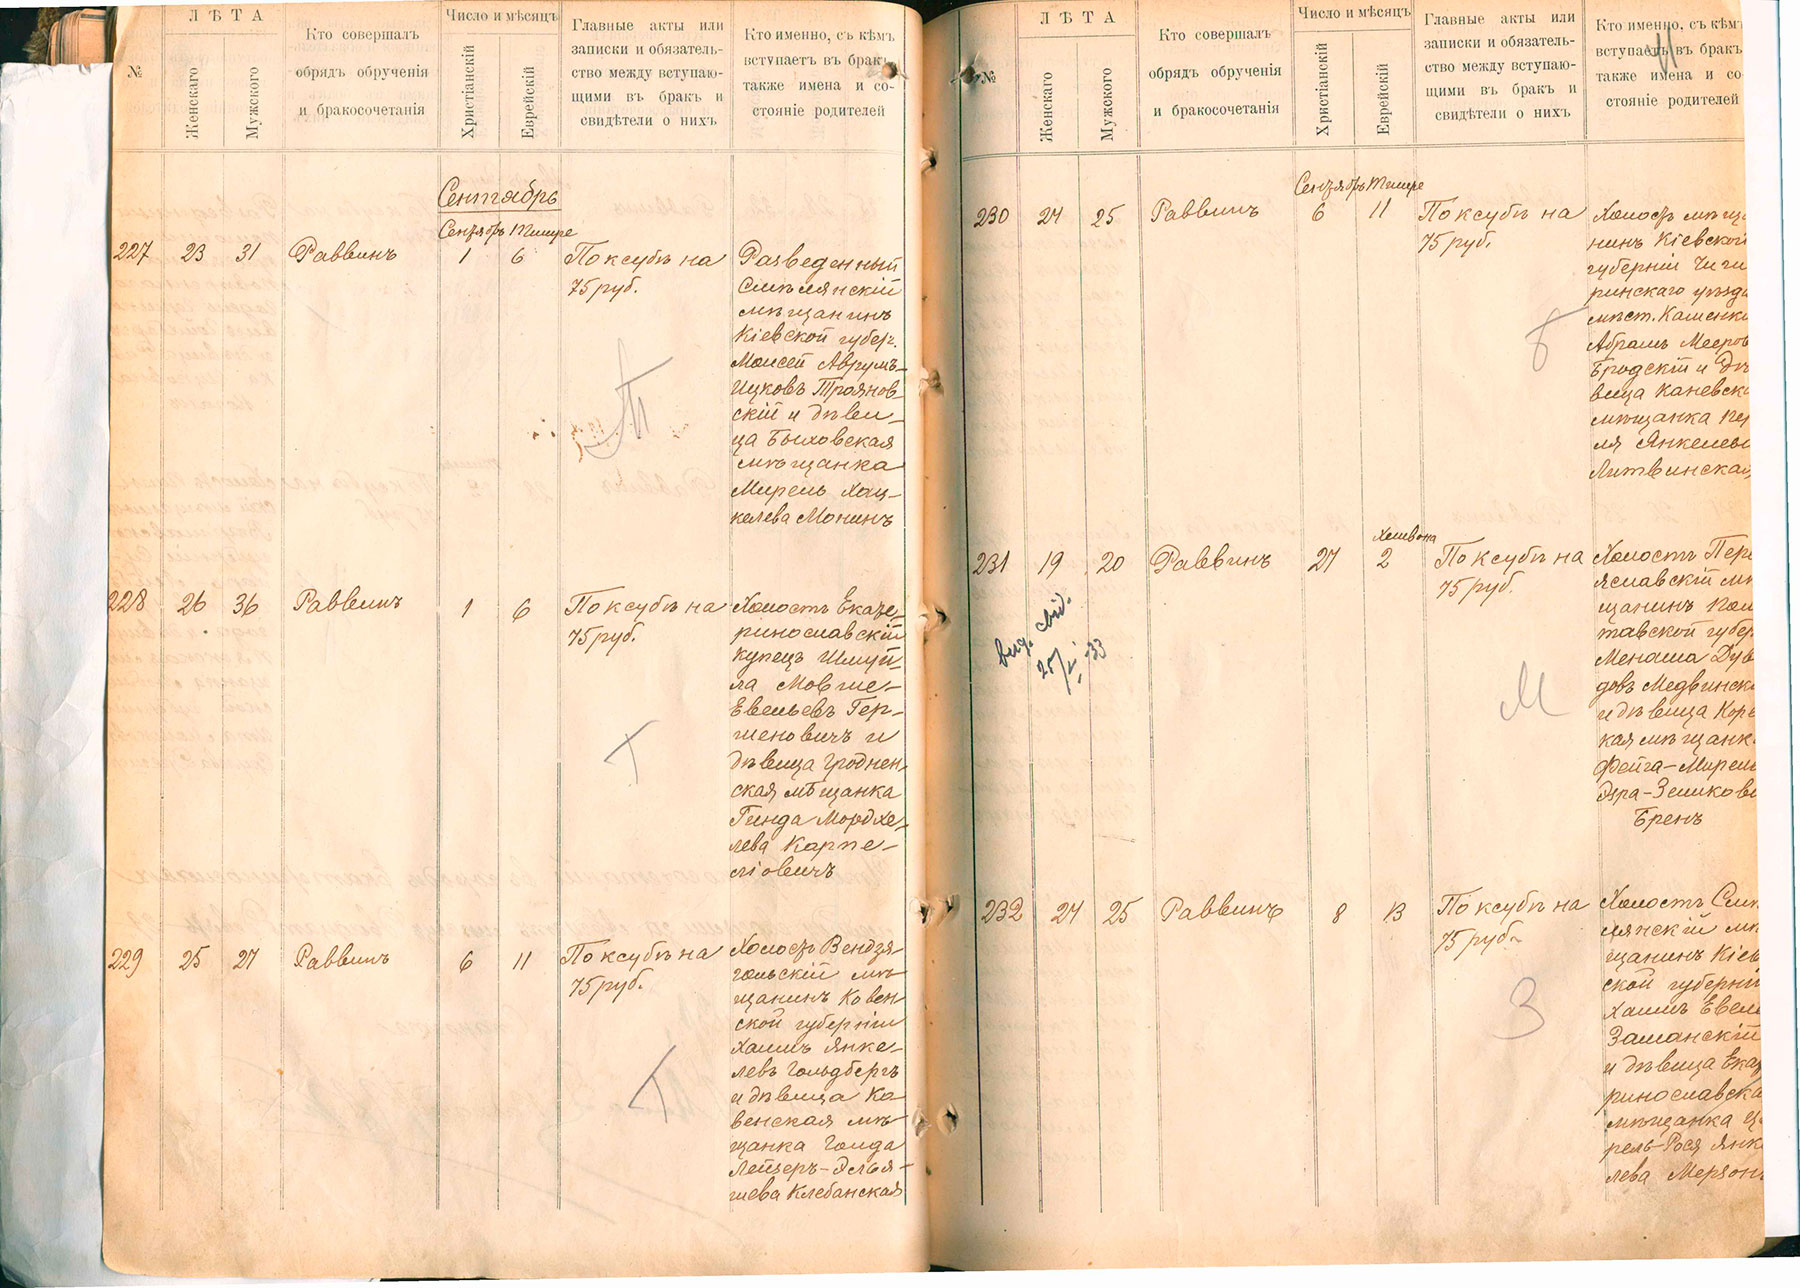 №
ЛѢТА
Женскаго
Мужского
Кто совершалъ
обрядъ обрученія
и бракосочетанія
Число и мѣсяцъ
Христіанскій
Еврейскій
Главные акты или
записки и обязатель-
ство между вступаю-
щими въ бракъ и
свидѣтели о нихъ
Кто именно, съ кѣмъ
вступаетъ въ бракъ,
также имена и со-
стояніе родителей
Сентябрь
Сентябрь Тишре
227 23 31 Раввинъ 1 6
По ксубѣ на
75 руб.
Разведенный
Смѣлянскій
мѣщанинъ
Кіевской губер.
Моисей Аврумъ-
Ицковъ Трояновъ-
скій и дѣви-
ца Быховская
мѣщанка
Мирель Хац-
келева Монинъ
228 26 36 Раввинъ 1 6
По ксубѣ на
75 руб.
Холостъ Екате-
ринославскій
купецъ Шмуй-
ла Мовше-
Евельевъ Гер-
шеновичъ и
дѣвица Гроднен-
ская мѣщанка
Гинда Мордхе-
лева Карпе-
ліовичъ
229 25 27 Раввинъ 6 11
По ксубѣ на
75 руб.
Холостъ Вендзя-
гольскій мѣ-
щанинъ Ковен
ской губерніи
Хаимъ Янке-
левъ Гольдбергъ
и дѣвица Ко
венская мѣ
щанка Голда
Лейзеръ-Элья-
шева Клебанская
№
ЛѢТА
Женскаго
Мужского
Кто совершалъ
обрядъ обрученія
и бракосочетанія
Число и мѣсяцъ
Христіанскій
Еврейскій
Главные акты или
записки и обязатель-
ство между вступаю-
щими въ бракъ и
свидѣтели о нихъ
Кто именно, съ кѣмъ
вступаетъ въ бракъ
также имена и со-
стояніе родителей
Сентябрь Тишре
230 24 25 Раввинъ 6 11
По ксубѣ на
75 руб.
Холостъ мѣща
нинъ Кіевской
губерніи Чиги
ринскаго уѣзда
мѣст. Каменки
Абрамъ Мееров
Бродскій и дѣ
вица Каневска
мѣщанка Пер
ля Янкелев
Литвинская
Хешвона
231 19 20 Раввинъ 27 2
По ксубѣ на
75 руб.
выд. свид.
Холостъ Пере
яславскій мѣ
щанинъ Пол
тавской губер
Менаша Дув
довъ Медвинск
и дѣвица Корс
кая мѣщанк
Фейга-Мирел
Эзра-Зеликов
Бренъ
М
232 24 25 Раввинъ 8 13
По ксубѣ на
75 руб.
З
Холостъ Смѣ
лянскій мѣ
щанинъ Кіев
ской губерніи
Хаимъ Евел
Заманскій
и дѣвица Екат
ринославска
мѣщанка Ц
рель-Рося Янк
лева Мерзон